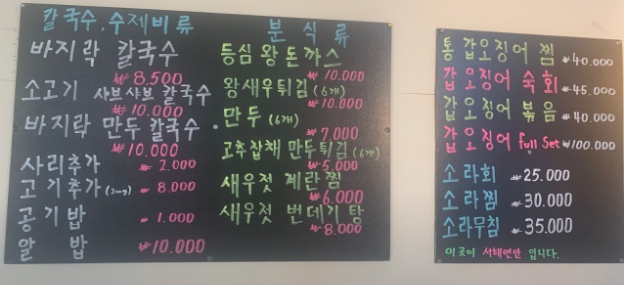 칼국수, 수제비류
바지락 칼국수
₩ 8.500
소고기 샤브샤브 칼국수
₩ 10.000
바지락 만두 칼국수
₩ 10.000
사리추가 ₩ 2.000
고기추가 ₩ 8.000
공기밥 ₩ 1.000
알 밥 ₩ 10.000
분 식 류
등심 왕 돈까스
₩ 10.000
왕새우튀김 (6개)
₩ 10.000
만두 (6개)
₩ 7.000
고추잡채 만두튀김 (6개)
₩ 5.000
새우젓 계란찜
₩ 6.000
새우젓 번데기 탕
₩ 8.000
통 갑오징어 찜 ₩ 40.000
갑오징어 숙회 ₩ 45.000
갑오징어 볶음 ₩ 40.000
갑오징어 full Set ₩ 100.000
소라회 ₩ 25.000
소라찜 ₩ 30.000
소라무침 ₩ 35.000
이곳이 서해연안 입니다.